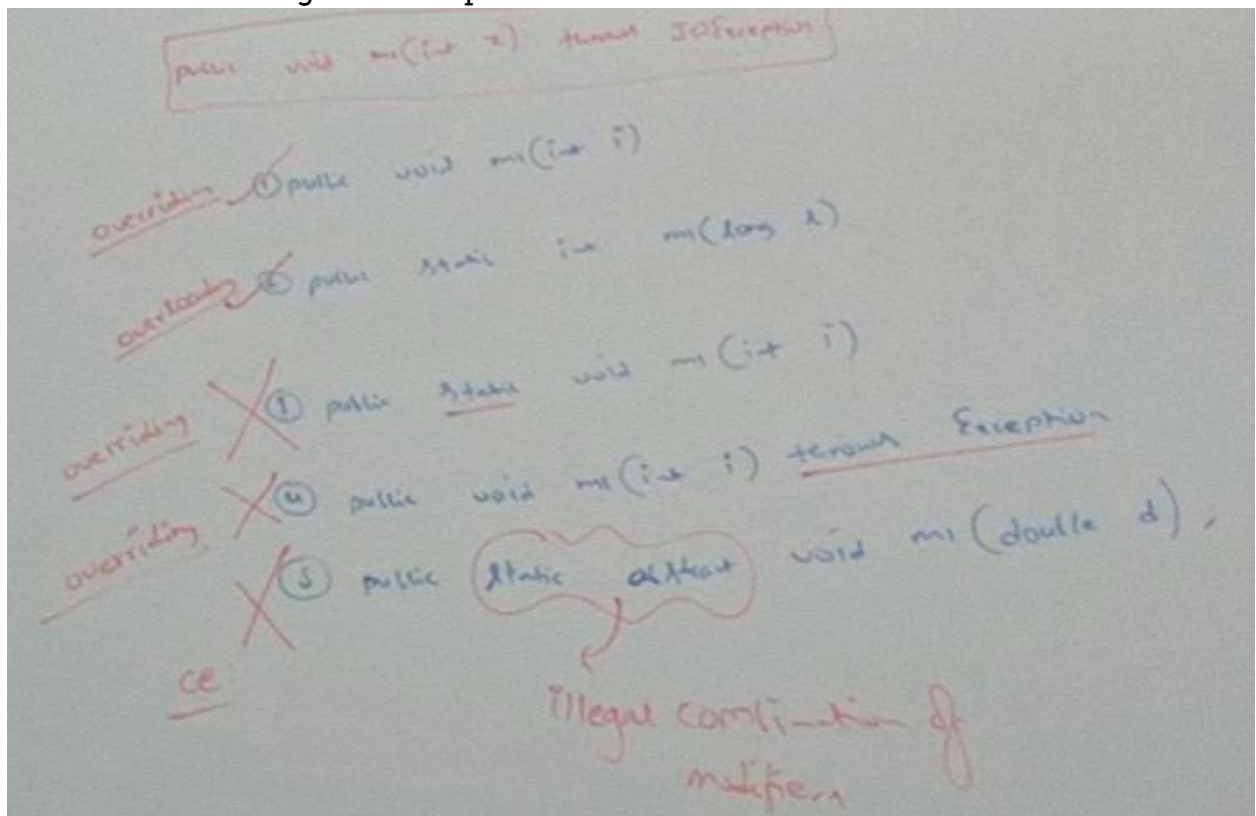 public void m1(int x) throws IOException
overriding ① public void m1(int i)
overloading ② public static int m1(long l)
overriding ③ public static void m1(int i)
overriding ④ public void m1(int i) throws Exception
⑤ public static abstract void m1(double d)
CE
illegal combination of
modifiers